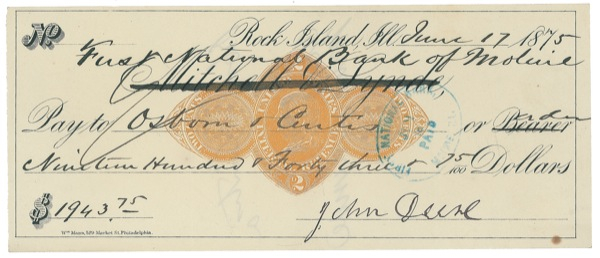 No.
Rock Island, Ill. June 17 1875
First National Bank of Moline
Mitchell & Lynde
Pay to Osborn & Curtis or Bearer order
Nineteen Hundred & Forty three & 75/100 Dollars
$ 1943.75 John Deere
Wm Mann, 529 Market St. Philadelphia.
NATIONAL
PAID
2
2